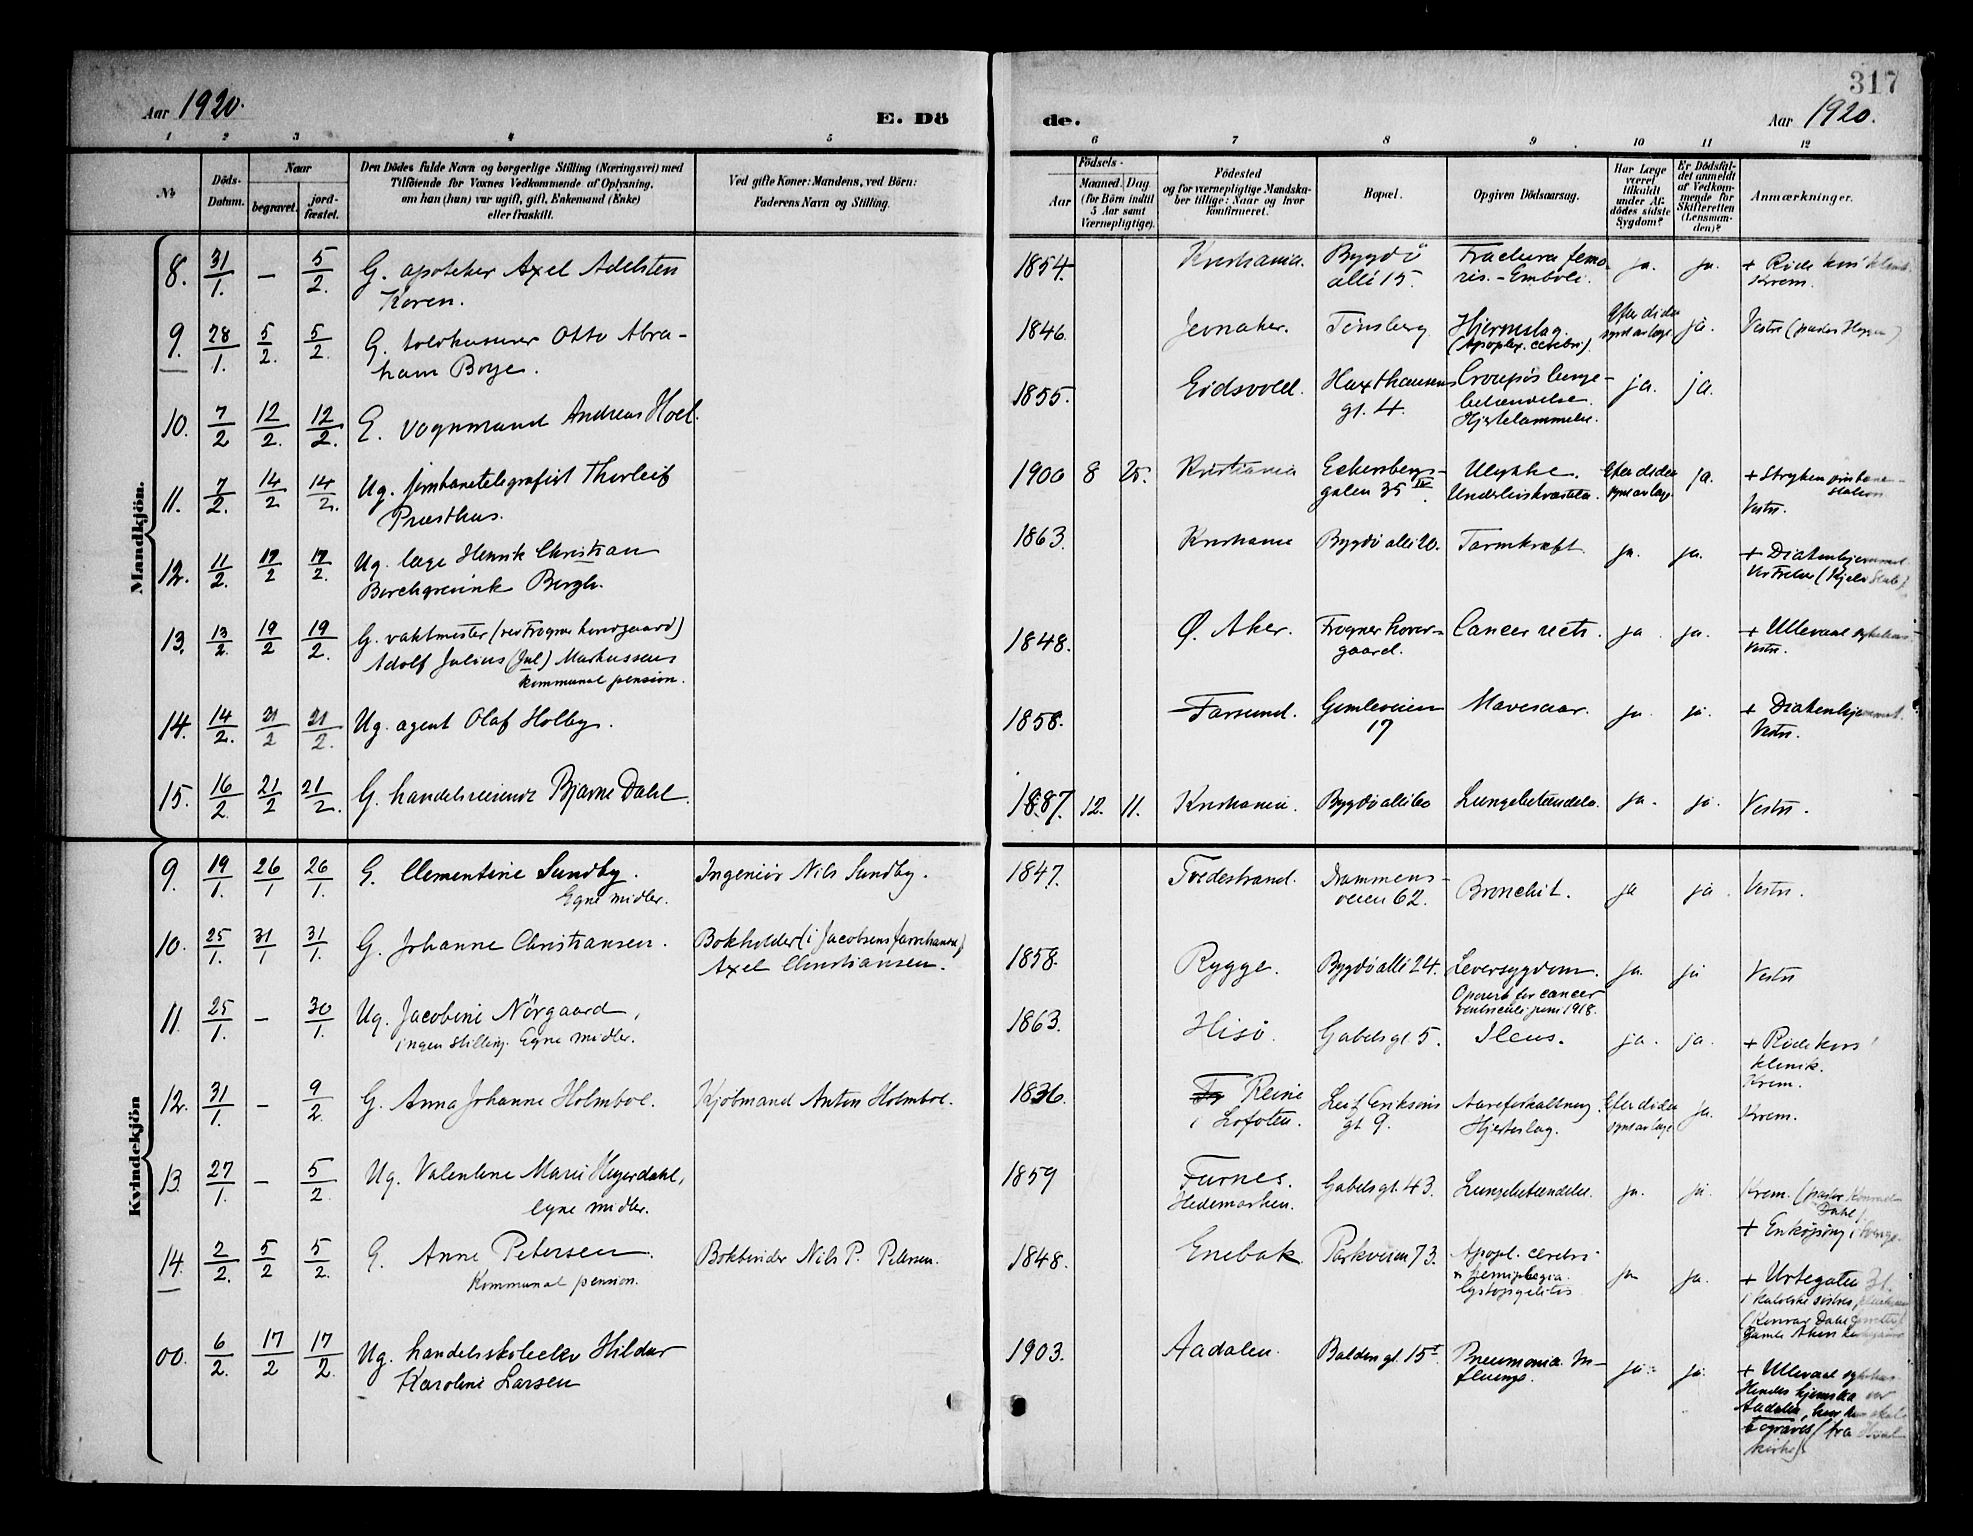 317
Aar 1920.
E. Dö
de.
Aar 1920.
1 2 3 4 5 6 7 8 9 10 11 12
No
Döds-
Datum.
Naar
begravet.
jord-
fæstet.
Den Dödes fulde Navn og borgerlige Stilling (Næringsvei) med
Tilföiende for Voxnes Vedkommende af Oplysning,
om han (hun) var ugift, gift, Enkemand (Enke)
eller fraskilt.
Ved gifte Koner: Mandens, ved Börn:
Faderens Navn og Stilling.
Födsels-
Aar
Maaned. Dag
(for Börn indtil
5 Aar samt
Værnepligtige).
Födested
og for værnepligtige Mandska-
ber tillige: Naar og hvor
konfirmeret.
Bopæl.
Opgiven Dödsaarsag.
Har Læge
været
tilkaldt
under Af-
dödes sidste
Sygdom?
Er Dödsfal-
det anmeldt
af Vedkom-
mende for
Skifteretten
(Lensman-
den)?
Anmærkninger.
Mandkjön.
8. 31/1. — 5/2 G. apoteker Axel Adelsten
Koren.
1854. Kristiania. Bygdö
allé 15. Fractura femo-
ris. - Emboli. ja. ja. + Röde kors' klinik.
Krem.
9. 28/1. 5/2. 5/2. G. toldkasserer Otto Abra-
ham Boye.
1846. Jevnaker. Tönsberg. Hjerneslag.
(Apoplex. cerebri). Efter döden
synt av læge ja. Vestre (pastor
10. 7/2 12/2. 12/2. E. vognmand Andreas Hoel.
1855. Eidsvold. Haxthausens
gt. 4. Croupös lunge-
betændelse.
Hjertelammelse. ja. ja.
11. 7/2. 14/2 14/2. Ug. jernbanetelegrafist Thorleif
Præsthus.
1900 8 25. Kristiania Eckersbergs-
gaten 35 IV. Ulykke.
Underlivskvæstelse. Efter döden
synt av læge ja. + Stryken jernbane-
station
Vestre.
12. 11/2. 17/2 17/2. Ug. læge Henrik Christian
Borchgrevink Bergh.
1863. Kristiania Bygdö allé 20. Tarmkræft. ja. ja. + Diakonhjemmet.
Vor Frelser
13. 13/2. 19/2 19/2. G. vaktmester (ved Frogner hovedgaard)
Adolf Julius (Jul) Markussen
kommunal pension.
1848. Ø. Aker. Frogner hoved-
gaard. Cancer recti. ja. ja. + Ullevaal sykehus
Vestre.
14. 14/2. 21/2 21/2. Ug. agent Olaf Holby.
1858. Farsund. Gimleveien
17 Mavesaar. ja. ja. + Diakonhjemmet.
Vestre.
15. 16/2. 21/2 21/2. G. handelsreisende Bjarne Dahl.
1887. 12. 11. Kristiania. Bygdö allé 60 Lungebetændelse. ja. ja. Vestre.
Kvindekjön
9. 19/1. 26/1 26/1. G. Clementine Sundby.
Egne midler.
Ingeniör Nils Sundby.
1847. Tvedestrand. Drammens-
veien 62. Bronchit. ja ja. Vestre.
10. 25/1. 31/1 31/1. G. Johanne Christiansen.
Bokholder (i Jacobsens farvehandel)
Axel Christiansen.
1858. Rygge. Bygdö allé 24. Leversygdom. ja. ja Vestre
11. 25/1. — 30/1. Ug. Jacobine Nörgaard,
ingen stilling. Egne midler.
1863. Hisö. Gabels gt. 5. Operert for cancer
ventriculi juni 1918.
Ileus. ja. ja. + Röde kors'
klinik.
Krem.
12. 31/1. — 9/2 G. Anna Johanne Holmboe.
Kjöbmand Anton Holmboe.
1836. Reine
i Lofoten. Leif Eriksöns
gt 9. Aareforkalkning.
Hjerteslag. Efter döden
synt av læge ja. Krem.
13. 27/1. — 5/2. Ug. Valentine Marie Heyerdahl,
egne midler.
1859 Furnes.
Hedemarken. Gabels gt. 43. Lungebetændelse. ja. ja. Krem. (pastor Konrad
Dahl)
14. 2/2. 5/2 5/2. G. Anne Petersen.
Kommunal pension.
Bokbinder Nils P. Petersen.
1848. Enebak. Parkveien 73. Apopl. cerebri
hemiplegia.
Cystopyelitis ja ja. + Enköping i Sverige.
+ Urtegaten
00. 6/2. 17/2 17/2. Ug. handelsskoleelev Hildur
Karoline Larsen
1903. Aadalen. Balders gt. 15 I. Pneumonia. In-
fluenza. ja. ja. + Ullevaal sykehus
Hendes hjemsted er
Aadalen, hvor hun skal
begraves (fra
kirke)